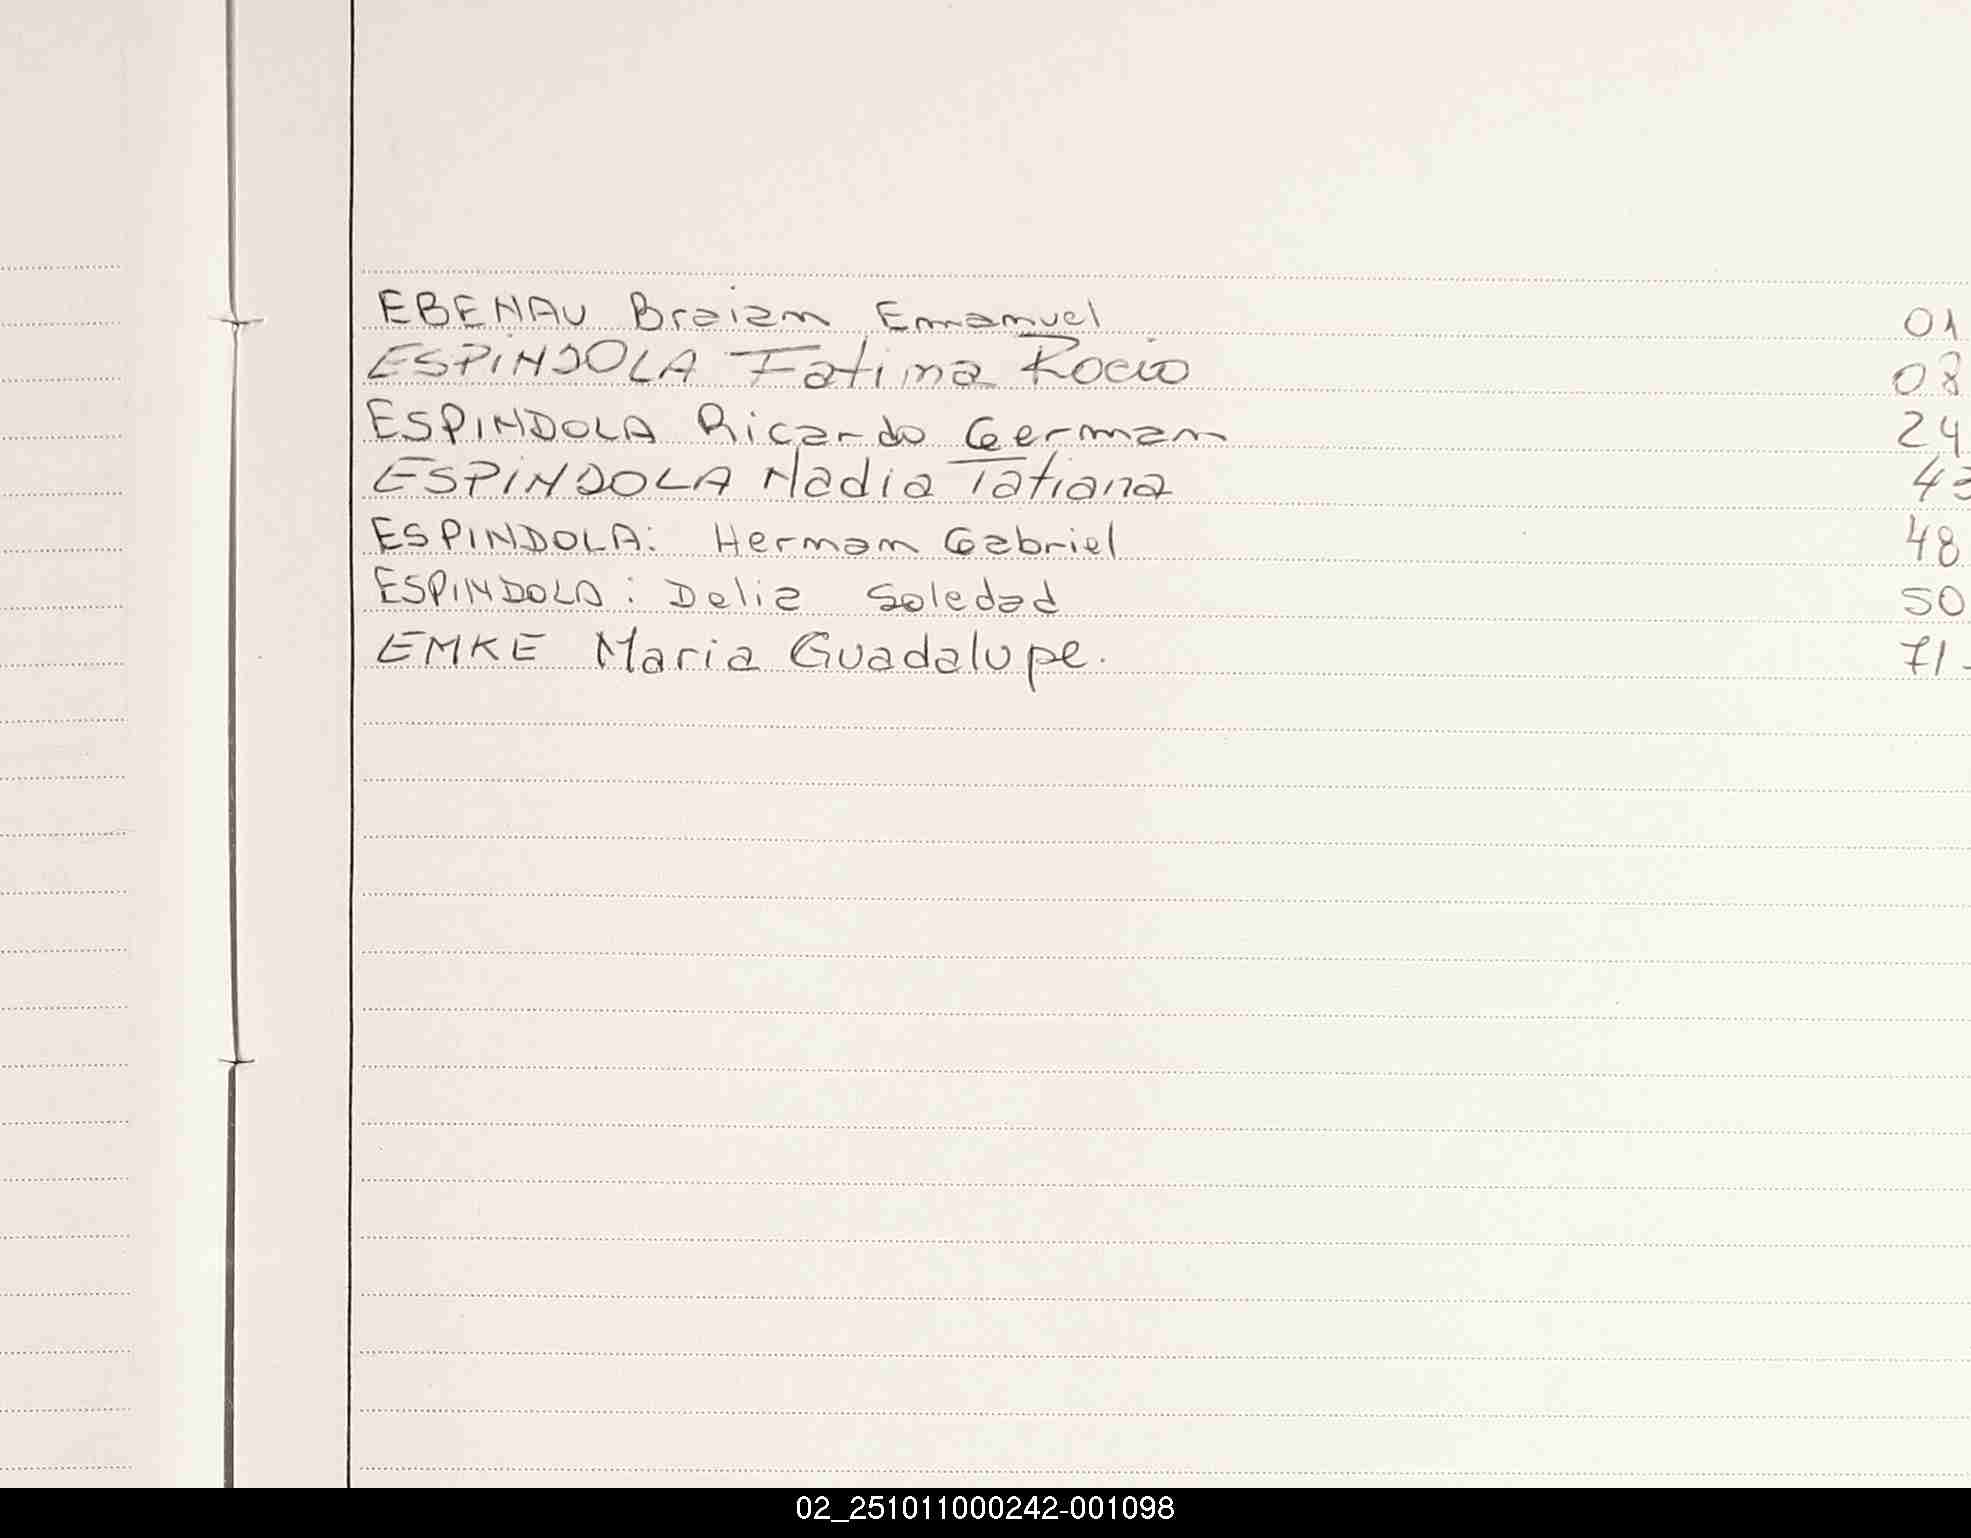 EBENAU Braian Emanuel 01
ESPINDOLA Fatima Rocio 08
ESPINDOLA Ricardo German 24
ESPINDOLA Nadia Tatiana 43
ESPINDOLA: Hernan Gabriel 48
ESPINDOLA: Delia Soledad 50
EMKE Maria Guadalupe. 71
02_251011000242-001098